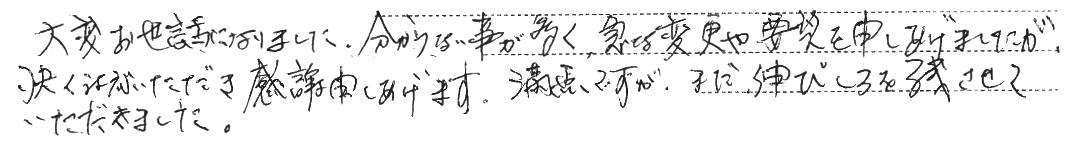 大変お世話になりました。分からない事が多く、急な変更や要望を申しあげましたが、
快く対応いただき感謝申しあげます。満点ですが、まだ、伸びしろを残させて
いただきました。